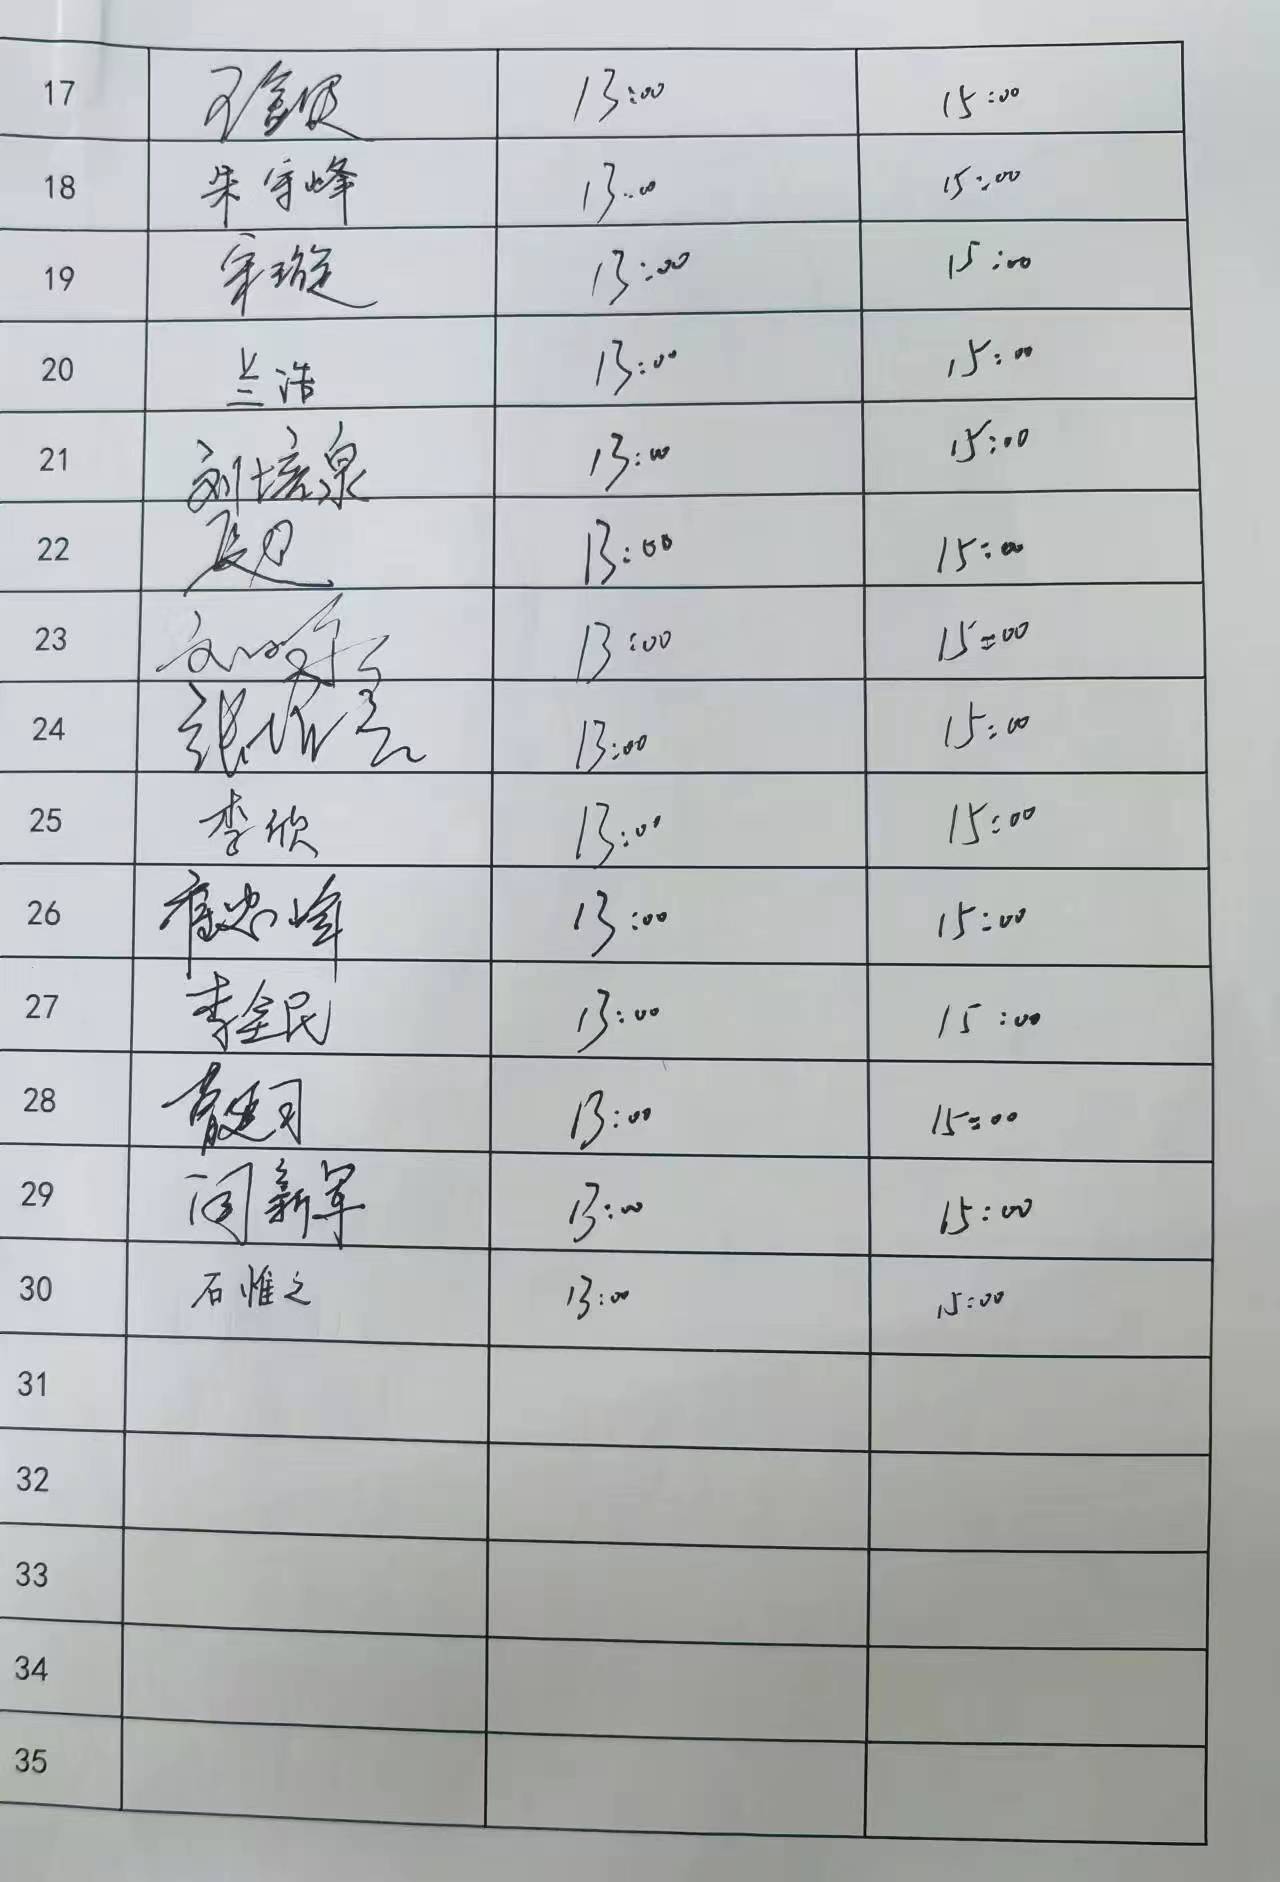 17 13:00 15:00
18 朱守峰 13:00 15:00
19 宋璇 13:00 15:00
20 兰浩 13:00 15:00
21 刘培泉 13:00 15:00
22 13:00 15:00
23 13:00 15:00
24 13:00 15:00
25 李欣 13:00 15:00
26 峰 13:00 15:00
27 李全民 13:00 15:00
28 13:00 15:00
29 闫新军 13:00 15:00
30 石惟之 13:00 15:00
31
32
33
34
35